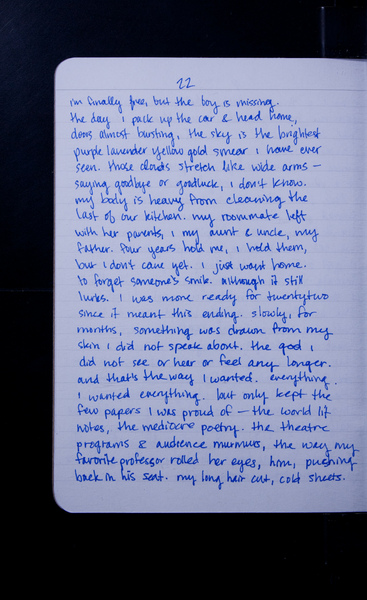 22
im finally free, but the boy is missing.
the day i pack up the car & head home,
doors almost bursting, the sky is the brightest
purple lavender yellow gold smear i have ever
seen. those clouds stretch like wide arms —
saying goodbye or goodluck, i don't know.
my body is heavy from cleaning the
last of our kitchen. my roommate left
with her parents, i my aunt & uncle, my
father. four years hold me, i hold them,
but i don't care yet. i just want home.
to forget someone's smile. although it still
lurks. i was more ready for twentytwo
since it meant this ending. slowly, for
months, something was drawn from my
skin i did not speak about. the god i
did not see or hear or feel any longer.
and that's the way i wanted. everything.
i wanted everything. but only kept the
few papers i was proud of — the world lit
notes, the mediocre poetry. the theatre
programs & audience murmurs, the way my
favorite professor rolled her eyes, him, pushing
back in his seat. my long hair cut, cold sheets.